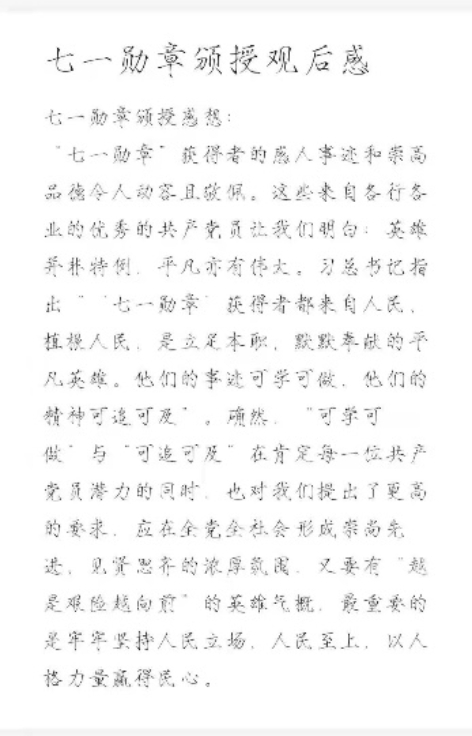 七一勋章颁授观后感
七一勋章颁授感想：
“七一勋章”获得者的感人事迹和崇高
品德令人动容且敬佩。这些来自各行各
业的优秀的共产党员让我们明白：英雄
并非特例，平凡亦有伟大。习总书记指
出“‘七一勋章’获得者都来自人民、
植根人民，是立足本职、默默奉献的平
凡英雄。他们的事迹可学可做，他们的
精神可追可及”。确然，“可学可
做”与“可追可及”在肯定每一位共产
党员潜力的同时，也对我们提出了更高
的要求，应在全党全社会形成崇尚先
进、见贤思齐的浓厚氛围，又要有“越
是艰险越向前”的英雄气概，最重要的
是牢牢坚持人民立场，人民至上，以人
格力量赢得民心。